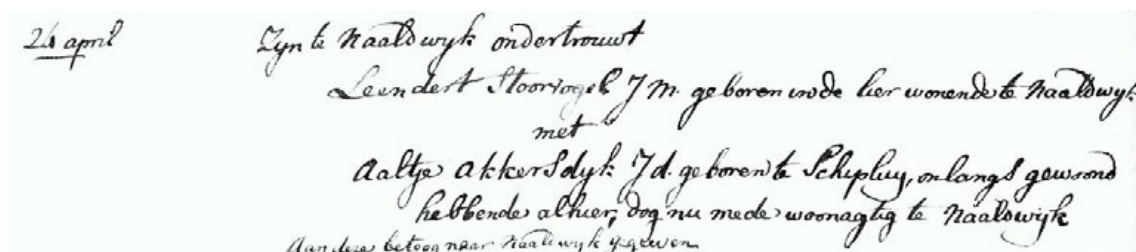 24 april
Zyn te Naaldwyk ondertrouwt
Leendert Stoorvogel J M. geboren in de lier wonende te Naaldwyk
met
Aaltje Akkersdyk J d. geboren te Schipluy, onlangs gewoond
hebbende alhier, dog nu mede woonagtig te Naaldwijk
Aan deze betoog naar Naaldwyk gegeven